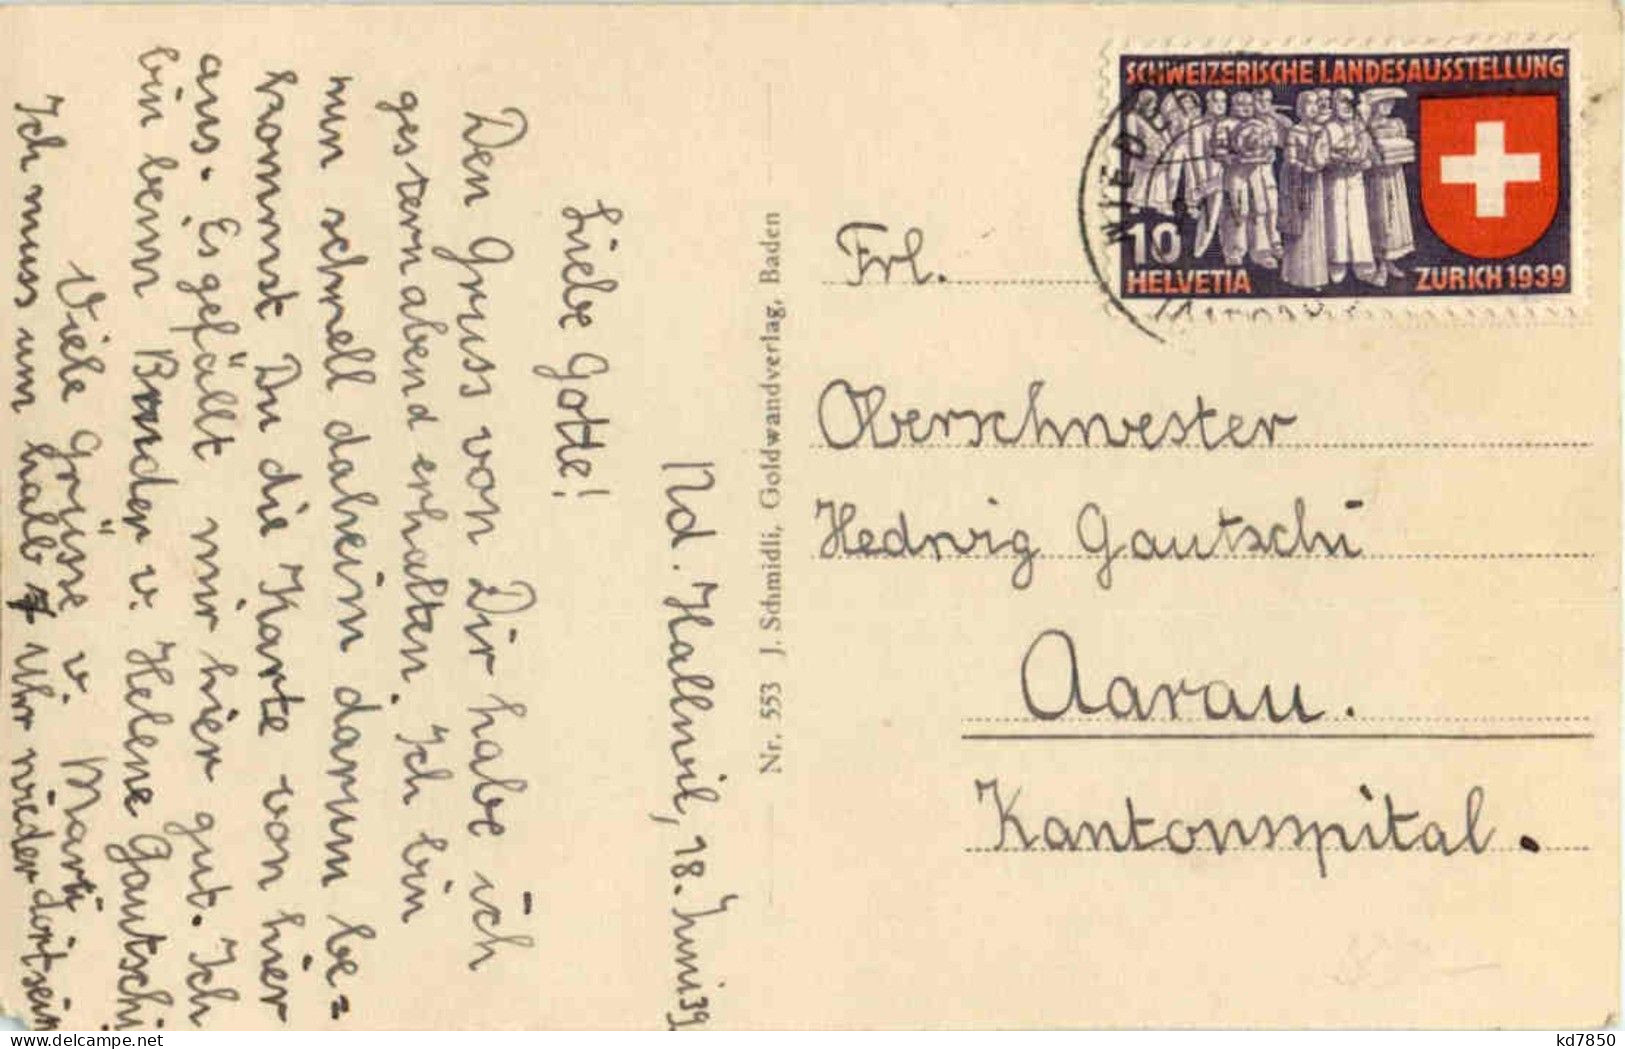 Nd. Hallwil, 18. Juni 39
Liebe Gotte!
Den Gruss von Dir habe ich
gestern abend erhalten. Ich bin
nun schnell daheim darum be=
kommst Du die Karte von hier
aus. Es gefällt mir hier gut. Ich
bin beim Bruder v. Helene Gautschi
Viele Grüsse v. Mary
Ich muss um halb 7 Uhr wieder dort sein
Nr. 553 J. Schmidli, Goldwandverlag, Baden
SCHWEIZERISCHE LANDESAUSSTELLUNG
10
HELVETIA
ZÜRICH 1939
Frl.
Oberschwester
Hedwig Gautschi
Aarau.
Kantonsspital.
kd7850